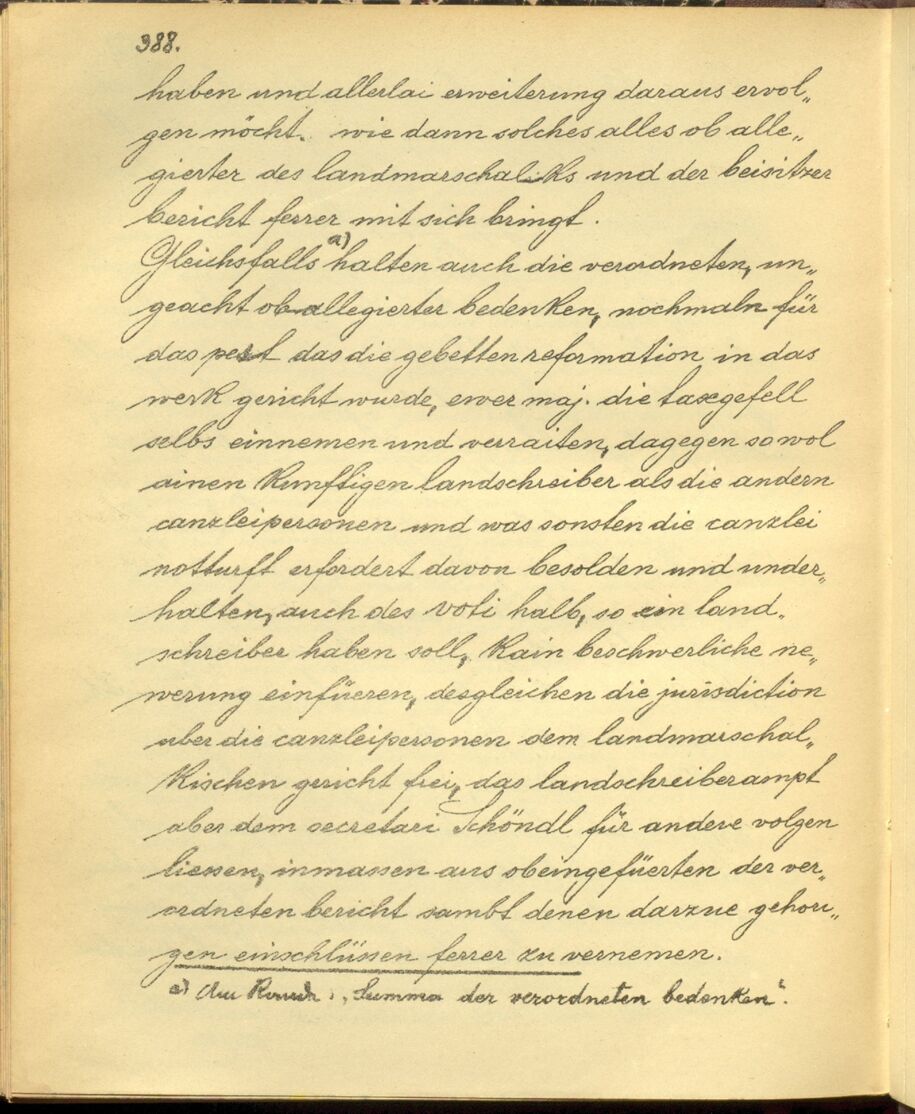 388.
haben und allerlai erweiterung daraus ervol„
gen möcht. wie dann solches alles ob alle„
gierter des landmarschalks und der beisitzer
bericht ferrer mit sich bringt.
Gleichsfalls a) halten auch die verordneten, un„
geacht ob allegierter bedenken, nochmaln für
das pest das die gebetten reformation in das
werk gericht wurde, ewer maj. die taxgefell
selbs einnemen und verraiten, dagegen sowol
ainen kunftigen landschreiber als die andern
canzleipersonen und was sonsten die canzlei
notturft erfordert davon besolden und under„
halten, auch des voti halb, so ein land„
schreiber haben soll, kain beschwerliche ne„
werung einfüeren, desgleichen die jurisdiction
uber die canzleipersonen dem landmarschal„
kischen gericht frei, das landschreiberampt
aber dem secretari Schöndl für andere volgen
liessen, inmassen aus obeingefüerten der ver„
ordneten bericht sambt denen darzue gehori„
gen einschlüssen ferrer zu vernemen.
a) Am Rande: „Summa der verordneten bedenken“.